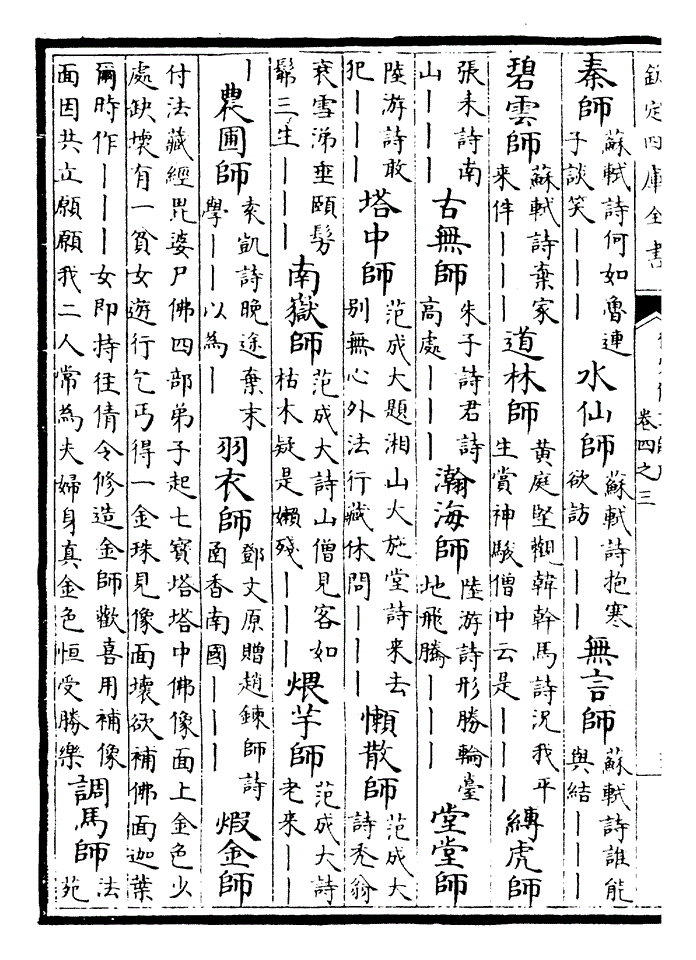 欽定四庫全書
卷四之三
秦師 蘇軾詩何如魯連子談笑丨丨 水仙師 蘇軾詩抱寒欲訪丨丨丨 無言師 蘇軾詩誰能與結丨丨丨
碧雲師 蘇軾詩棄家來伴丨丨丨 道林師 黃庭堅觀韓幹馬詩況我平生賞神駿僧中云是丨丨丨 縛虎師
張耒詩南山丨丨丨 古無師 朱子詩君詩高處丨丨丨 瀚海師 陸游詩形勝輪臺地飛騰丨丨丨 堂堂師
陸游詩敢犯丨丨丨 塔中師 范成大題湘山大施堂詩来去別無心外法行藏休問丨丨丨 懶散師 范成大詩禿翁
衰雪涕垂頤髣髴三生丨丨丨 南嶽師 范成大詩山僧見客如枯木疑是嬾殘丨丨丨 煨芋師 范成大詩老来丨丨
丨 農圃師 袁凱詩晚途棄末學丨丨以為丨 羽衣師 鄧文原贈趙鍊師詩函香南國丨丨丨 煆金師
付法藏經毘婆尸佛四部弟子起七寶塔塔中佛像面上金色少處缺壞有一貧女遊行乞丐得一金珠見像面壞欲補佛面迦葉
爾時作丨丨丨女即持往倩令修造金師歡喜用補像面因共立願願我二人常為夫婦身真金色恒受勝樂 調馬師 法苑